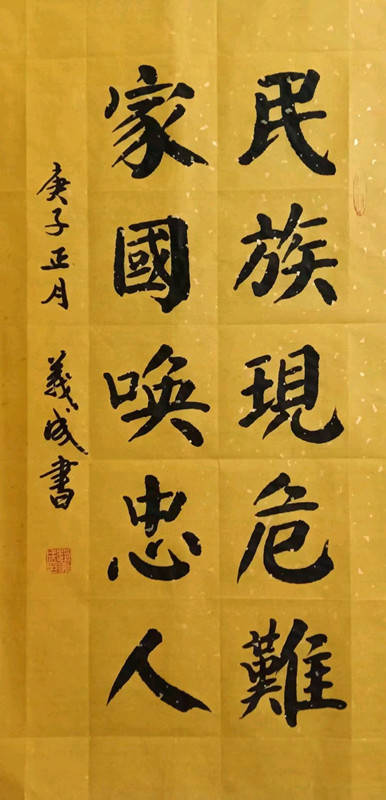 民族現危難
家國唤忠人
庚子正月 義成書